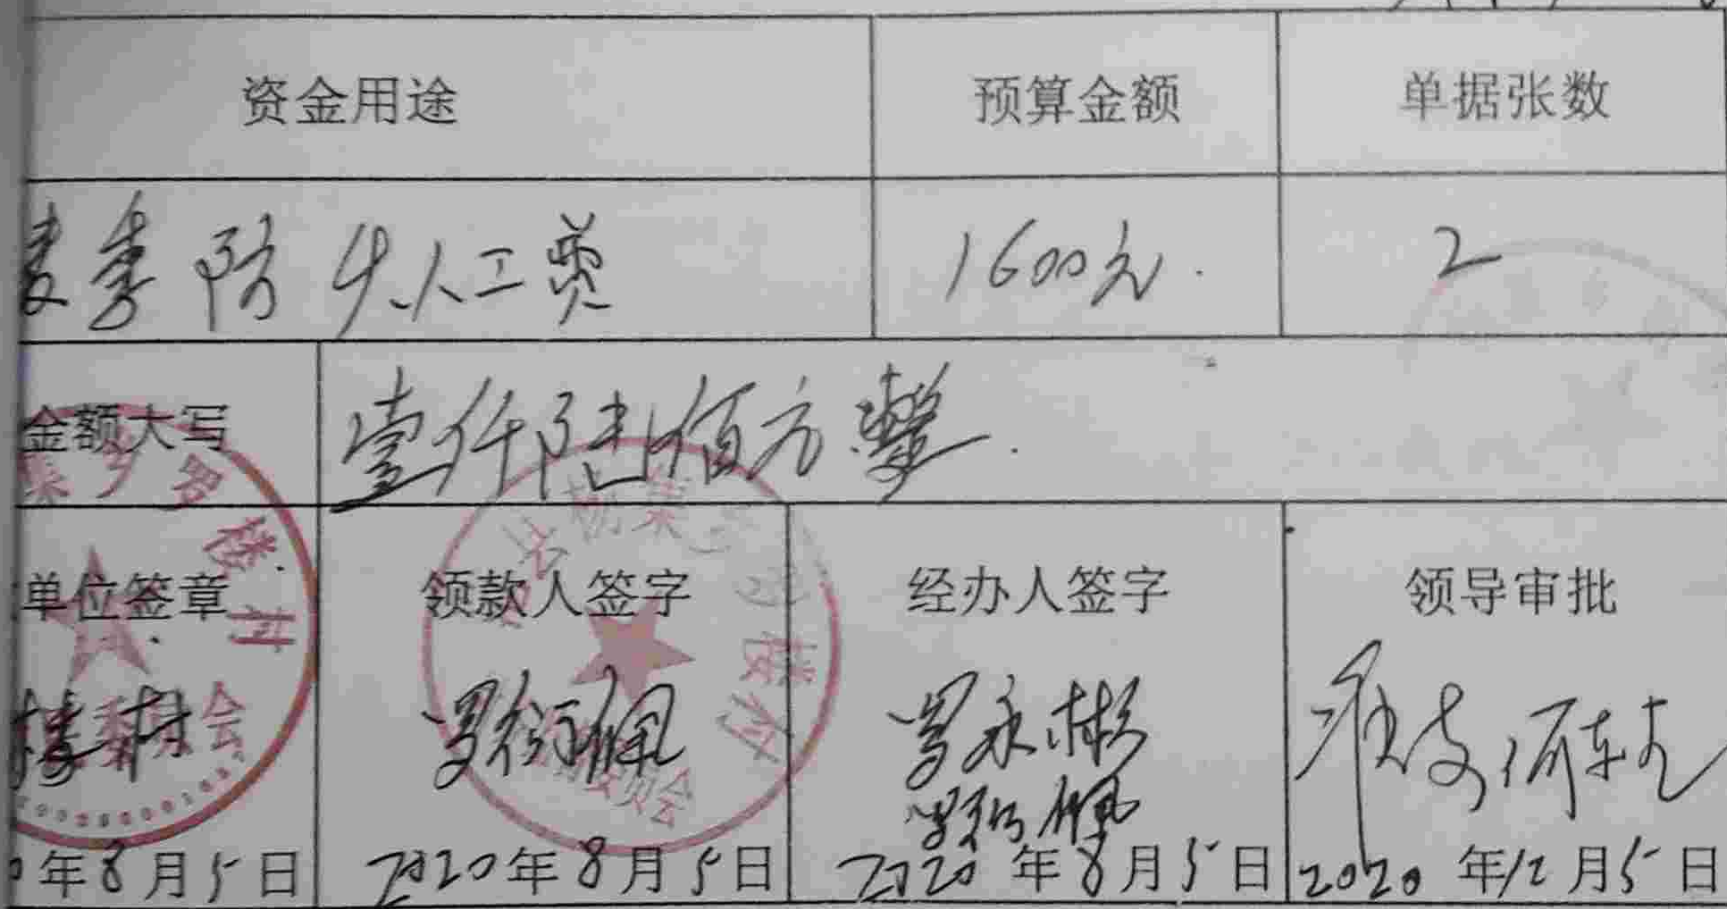 资金用途 预算金额 单据张数
麦季防火人工费 1600元. 2
金额大写 壹仟陆佰元整.
单位签章 领款人签字 经办人签字 领导审批
楼村 罗衍佩 罗永彬 准支
罗衍佩
年8月5日 2020年8月5日 2020年8月5日 2020年12月5日